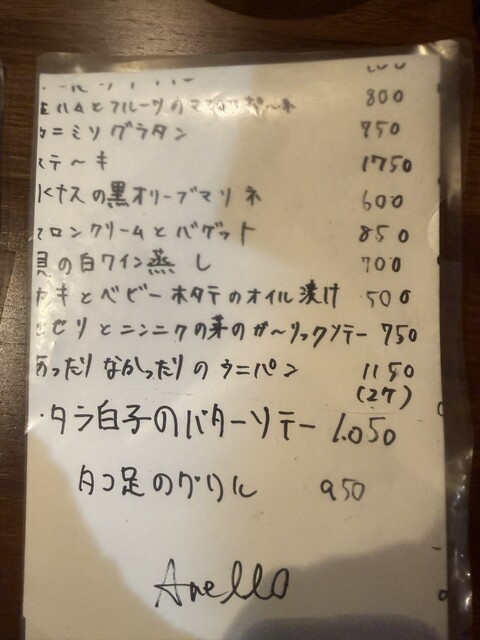 生ハムとフルーツのマスカルポーネ 800
カニミソグラタン 950
ステーキ 1750
水ナスの黒オリーブマリネ 600
マロンクリームとバゲット 850
貝の白ワイン蒸し 700
カキとベビーホタテのオイル漬け 500
とニンニクの芽のガーリックソテー 750
あったりなかったりのウニパン 1150
(2ケ)
・タラ白子のバターソテー 1.050
タコ足のグリル 950
Anello